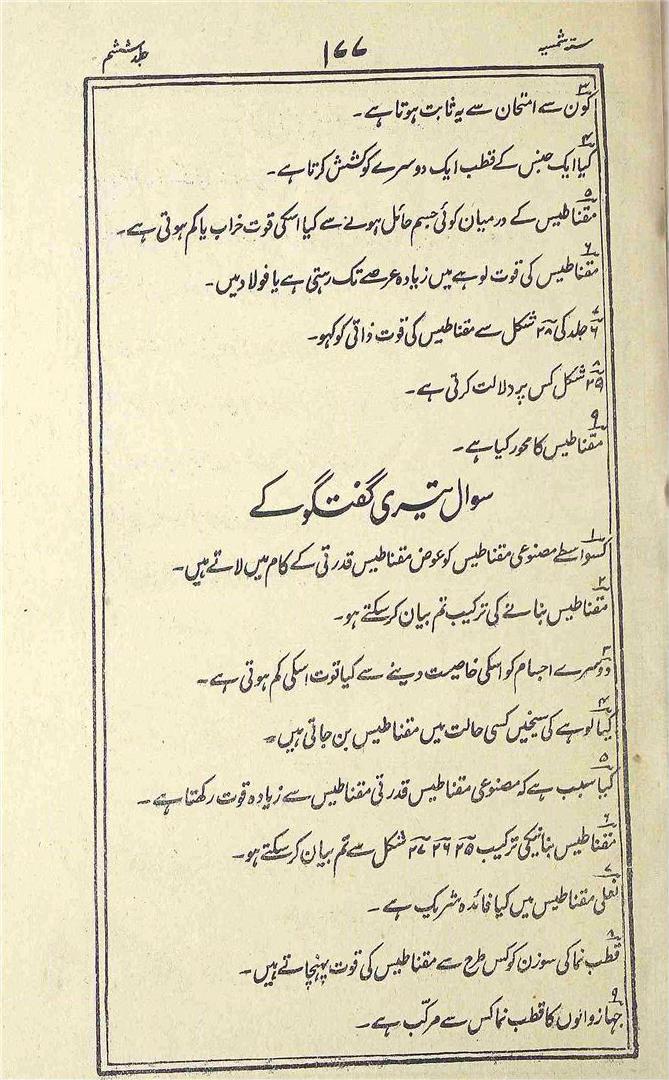 ستہ شمسیہ ۱۷۷ جلد ششم
۳ کون سے امتحان سے یہ ثابت ہوتا ہے۔
۴ کیا ایک جنس کے قطب ایک دوسرے کو کشش کرتا ہے۔
۵ مقناطیس کے درمیان کوئی جسم حائل ہونے سے کیا اسکی قوت خراب یا کم ہوتی ہے۔
۶ مقناطیس کی قوت لوہے میں زیادہ عرصے تک رہتی ہے یا فولاد میں۔
۷ ۶ جلد کی ۲۸ شکل سے مقناطیس کی قوت ذاتی کو کہو۔
۸ ۲۹ شکل کس پر دلالت کرتی ہے۔
۹ مقناطیس کا محور کیا ہے۔
سوال تیسری گفتگو کے
۱ کسواسطے مصنوعی مقناطیس کو عوض مقناطیس قدرتی کے کام میں لاتے ہیں۔
۲ مقناطیس بنانے کی ترکیب تم بیان کر سکتے ہو۔
۳ دوسرے اجسام کو اسکی خاصیت دینے سے کیا قوت اسکی کم ہوتی ہے۔
۴ کیا لوہے کی سیخیں کسی حالت میں مقناطیس بن جاتی ہیں۔
۵ کیا سبب ہے کہ مصنوعی مقناطیس قدرتی مقناطیس سے زیادہ قوت رکھتا ہے۔
۶ مقناطیس بنانیکی ترکیب ۲۵ ۲۶ ۲۷ شکل سے تم بیان کر سکتے ہو۔
۷ نعلی مقناطیس میں کیا فائدہ شریک ہے۔
۸ قطب نما کی سوزن کو کس طرح سے مقناطیس کی قوت پہنچاتے ہیں۔
۹ جہاز والوں کا قطب نما کس سے مرکّب ہے۔